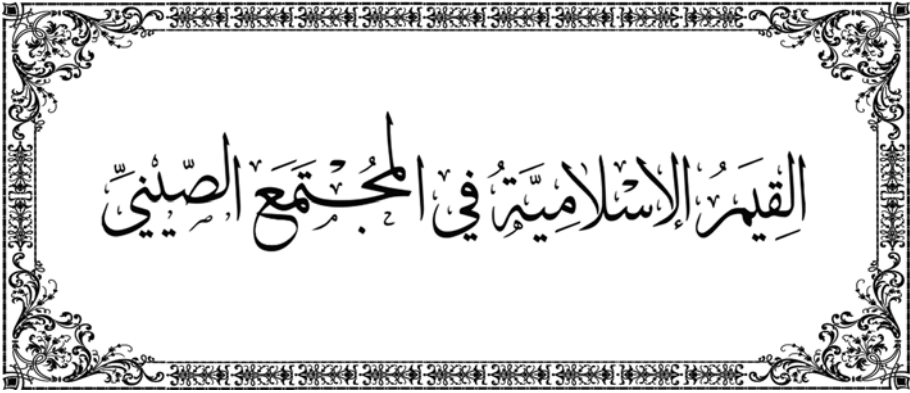 القِيَمُ الإِسْلامِيَّةُ في المُجْتَمَعِ الصِّيْنِيِّ